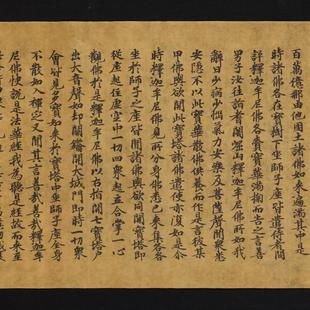 百萬億那由他國土諸佛如來遍滿其中是
時諸佛各在寶樹下坐師子座皆遣侍者問
訊釋迦牟尼佛各賷寶華滿掬而告之言善
男子汝往詣耆闍崛山釋迦牟尼佛所如我
辭曰少病少惱氣力安樂及菩薩聲聞衆悉
安隱不以此寶華散佛供養而作是言彼某
甲佛與欲開此寶塔諸佛遣使亦復如是尒
時釋迦牟尼佛見所分身佛悉已來集各各
坐於師子之座皆聞諸佛與欲同開寶塔即
從座起住虛空中一切四衆起立合掌一心
觀佛於是釋迦牟尼佛以右指開七寶塔戶
出大音聲如却關鑰開大城門即時一切衆
會皆見多寶如來於寶塔中坐師子座全身
不散如入禪定又聞其言善哉善哉釋迦牟
尼佛快說是法華經我為聽是經故而來至